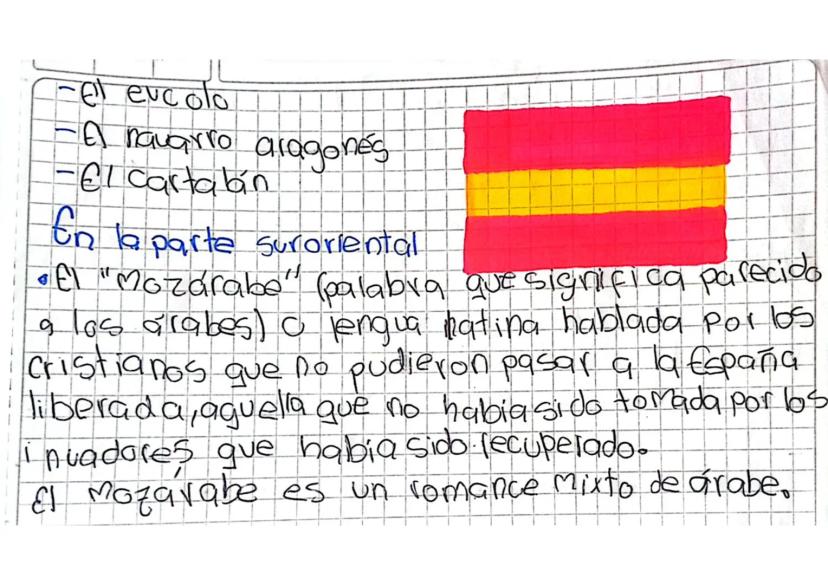 -El eucolo
-El navarro aragonés
-El cartabín
En la parte suroriental
•El "Mozárabe" (palabra que significa parecido
a los árabes) o lengua hatina hablada por los
cristianos que no pudieron pasar a la España
liberada, aquella que no había sido tomada por los
invadores que había sido recuperado.
El mozárabe es un romance mixto de árabe.